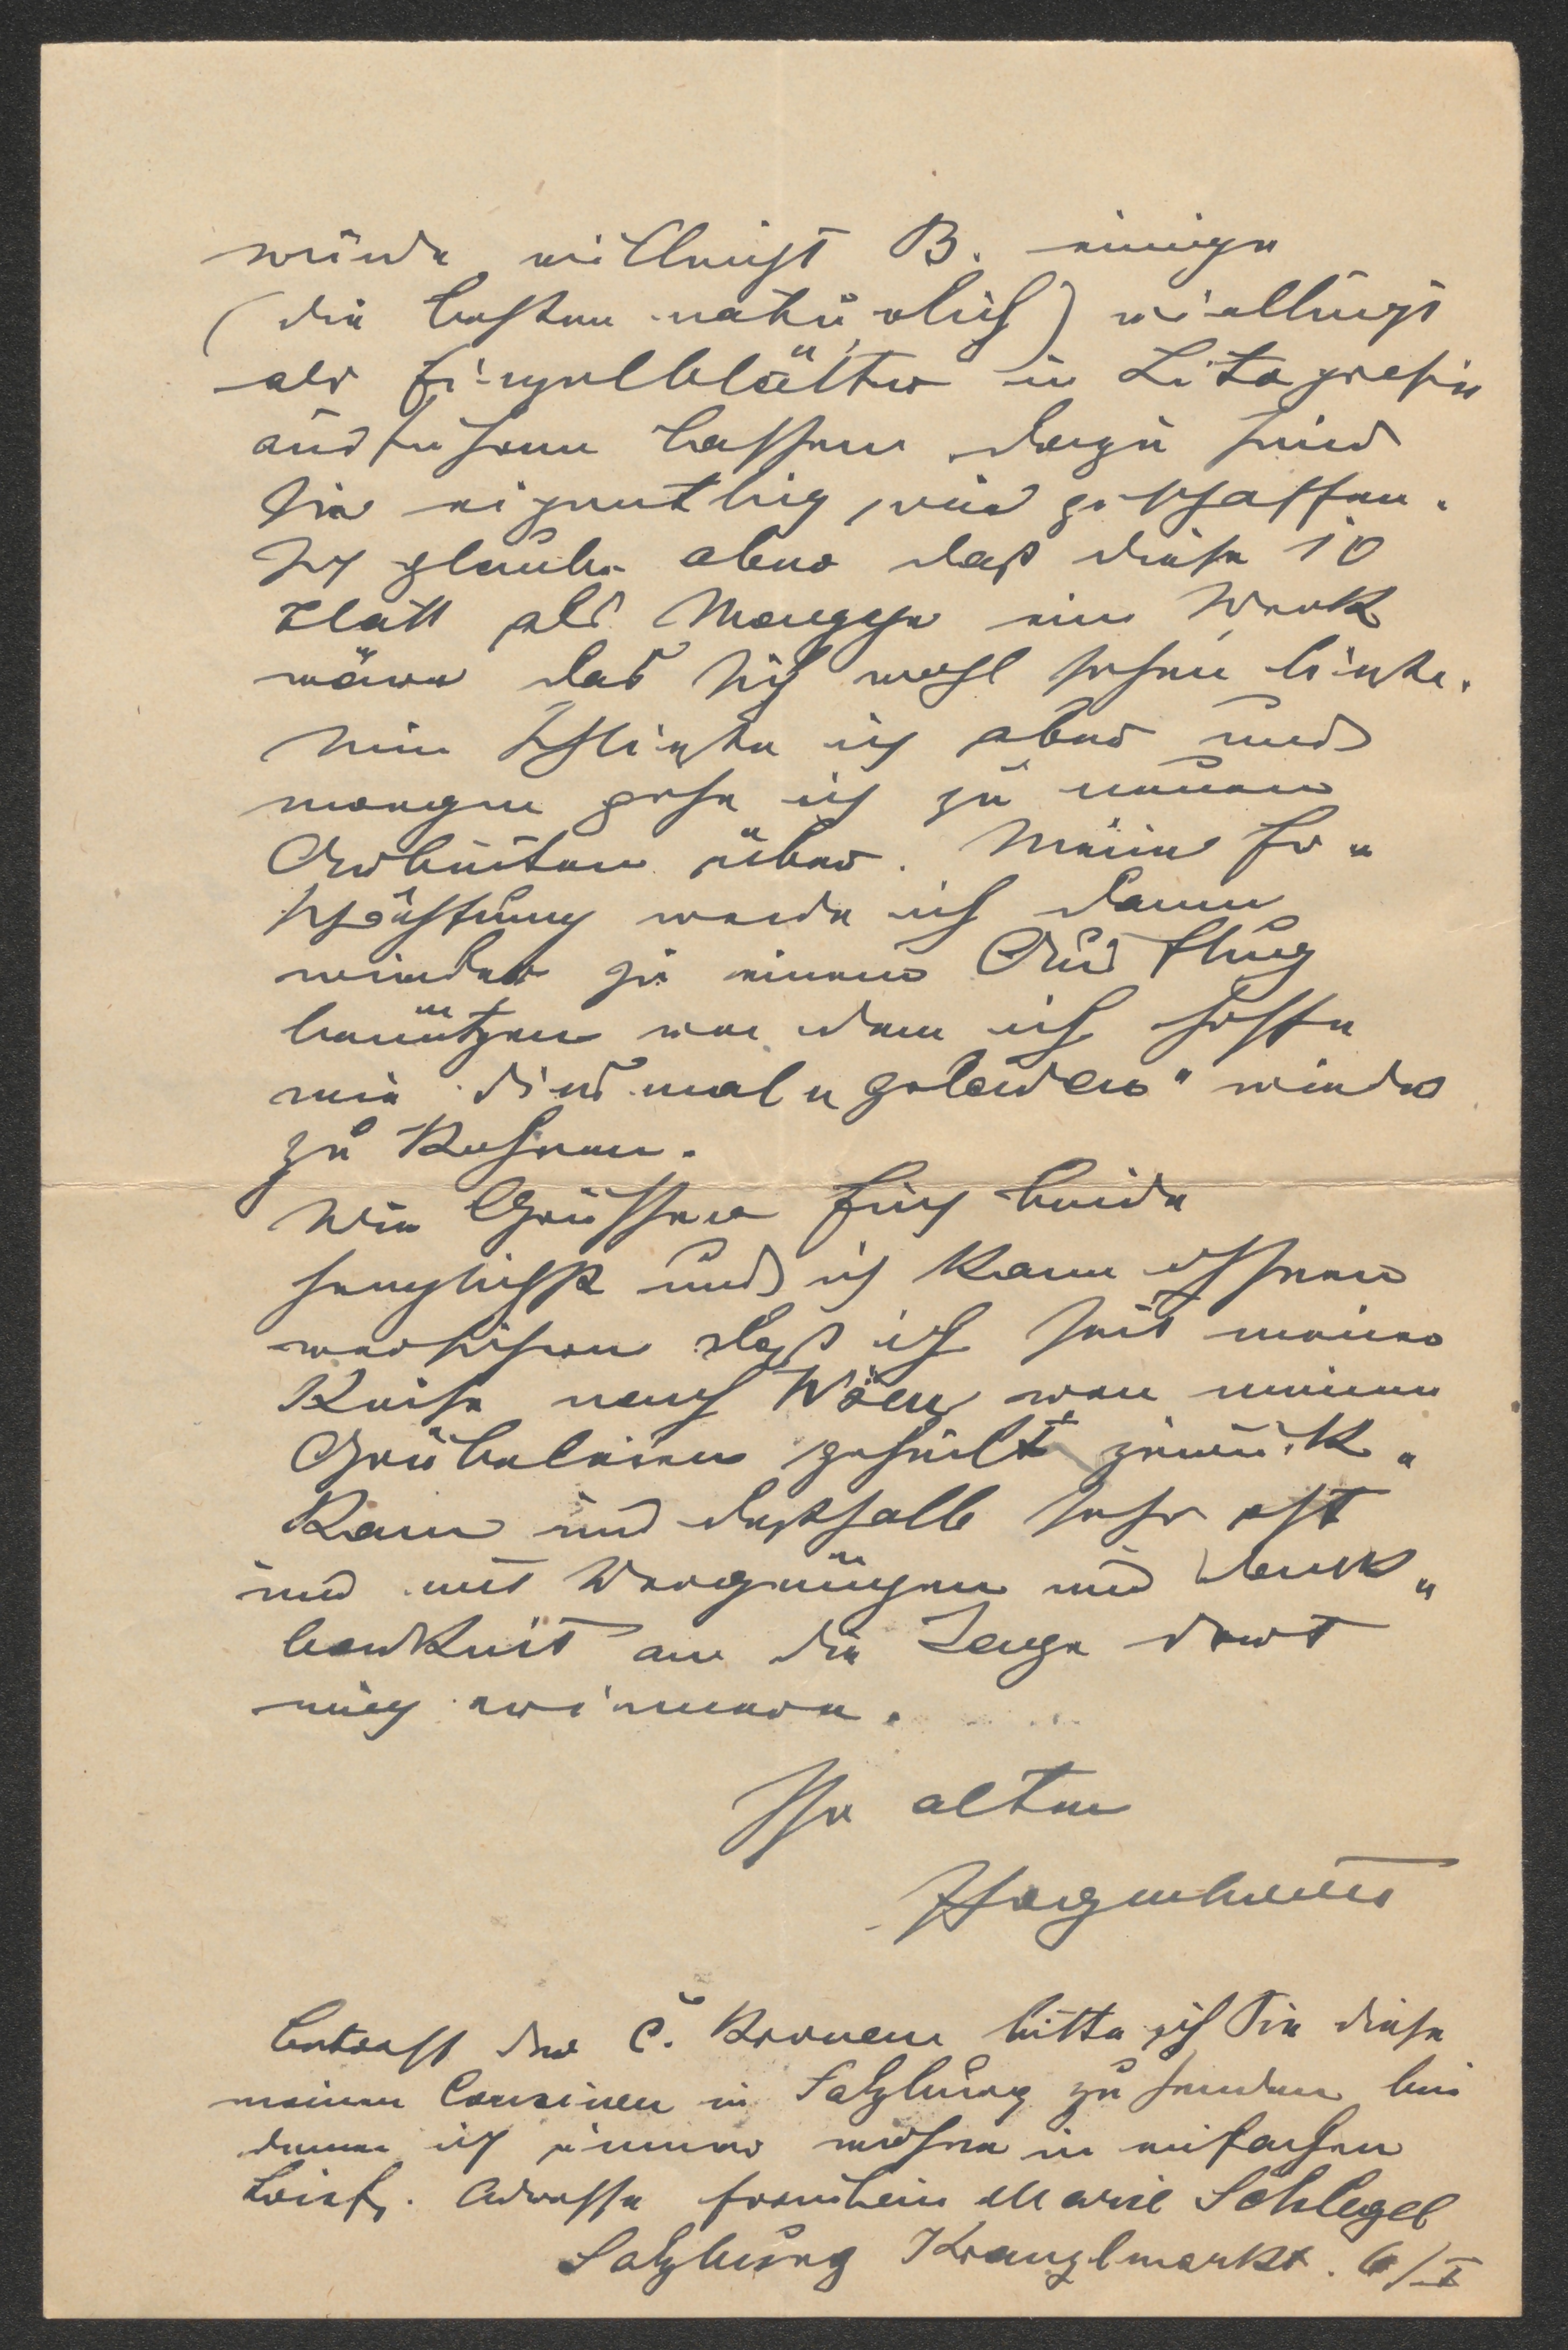 würde vielleicht B. einige
(die besten natürlich) vielleicht
als Einzelblätter in Litografie
ausführen lassen dazu sind
sie eigentlich wie geschaffen.
Ich glaube aber daß diese 10
Blatt als Mappe ein Werk
wäre das sich wohl sehen ließe.
Nun schließe ich aber und
morgen gehe ich zu neuen
Arbeiten über. Meine Er-
schöpfung werde ich dann
wieder zu einem Ausflug
benützen von dem ich hoffe
wie diesmal "geladen" wieder
zu kehren.
Wir Grüssen Euch beide
herzlichst und ich kann Ihnen
versichern daß ich seit meiner
Reise nach Wien von meinen
Grübeleien geheilt zurück-
kam und desshalb sehr oft
und mit Vergnügen und Dank-
barkeit an die Tage dort
mich erinnere.
Ihr alter
Hegenbarth
Betreff der č. Kronen bitte ich Sie diese
meinen Cousinen in Salzburg zu senden bei
denen ich immer wohne in einfachen
Brief. Adresse Fräulein Marie Schlegel
Salzburg Kranzlmarkt. 6/I